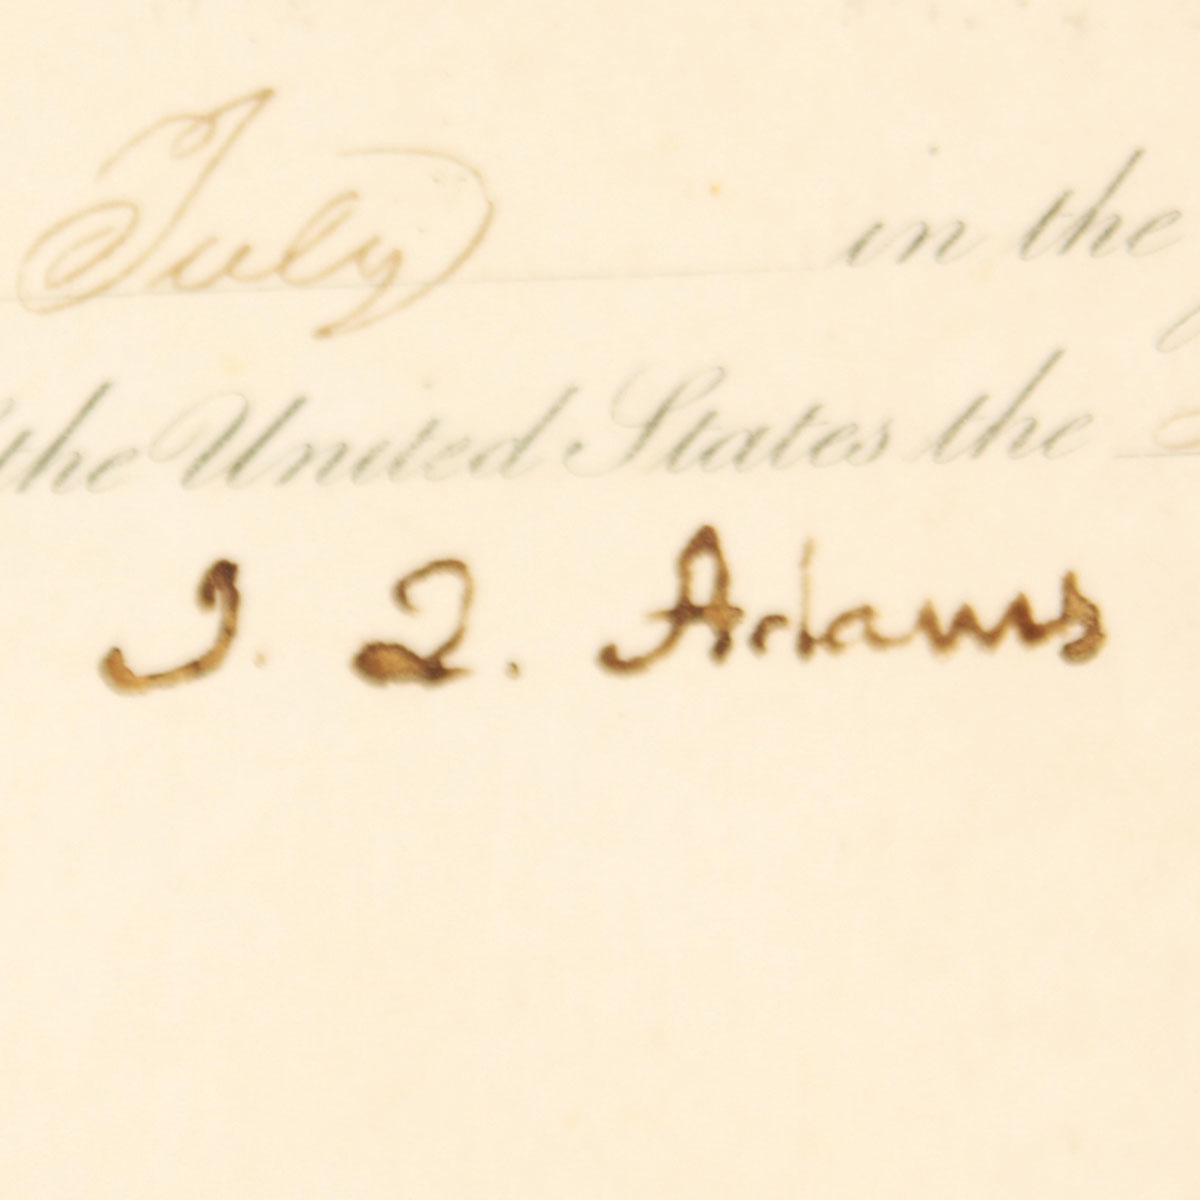 July in the
the United States the
J. Q. Adams